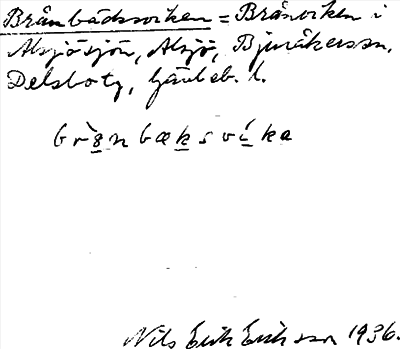 Brånbäcksviken = Brånviken i
Alsjösjön, Alsjö, Bjuråkerssn,
Delsbo tg, Gävleb. l.
brånbæksvíka
Nils Erik Eriksson 1936.